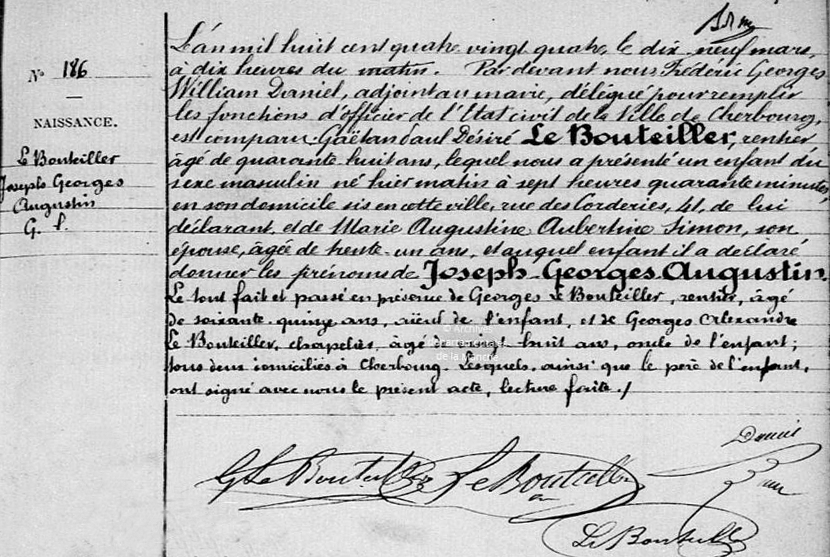 Nº 186
NAISSANCE.
Le Bouteiller
Joseph Georges
Augustin
G. L.
L'an mil huit cent quatre vingt quatre, le dix-neuf mars,
à dix heures du matin. Par devant nous Frédéric Georges
William Daniel, adjoint au maire, délégué pour remplir
les fonctions d'officier de l'Etat civil de la Ville de Cherbourg,
est comparu Gaëtan Paul Désiré Le Bouteiller, rentier
âgé de quarante huit ans, lequel nous a présenté un enfant du
sexe masculin né hier matin à sept heures quarante minutes,
en son domicile sis en cette ville, rue des Corderies, 41, de lui
déclarant, et de Marie Augustine Aubertine Simon, son
épouse, âgée de trente-un ans, et auquel enfant il a déclaré
donner les prénoms de Joseph-Georges Augustin.
Le tout fait et passé en présence de Georges Le Bouteiller, rentier, âgé
de soixante-quinze ans, aïeul de l'enfant, et de Georges Alexandre
Le Bouteiller, chapelier, âgé de huit ans, oncle de l'enfant;
tous deux domiciliés à Cherbourg. Lesquels, ainsi que le père de l'enfant,
ont signé avec nous le présent acte, lecture faite./
© Archives
départementales
de la Manche
G Le Bouteiller
Le Bouteiller
Le Bouteiller